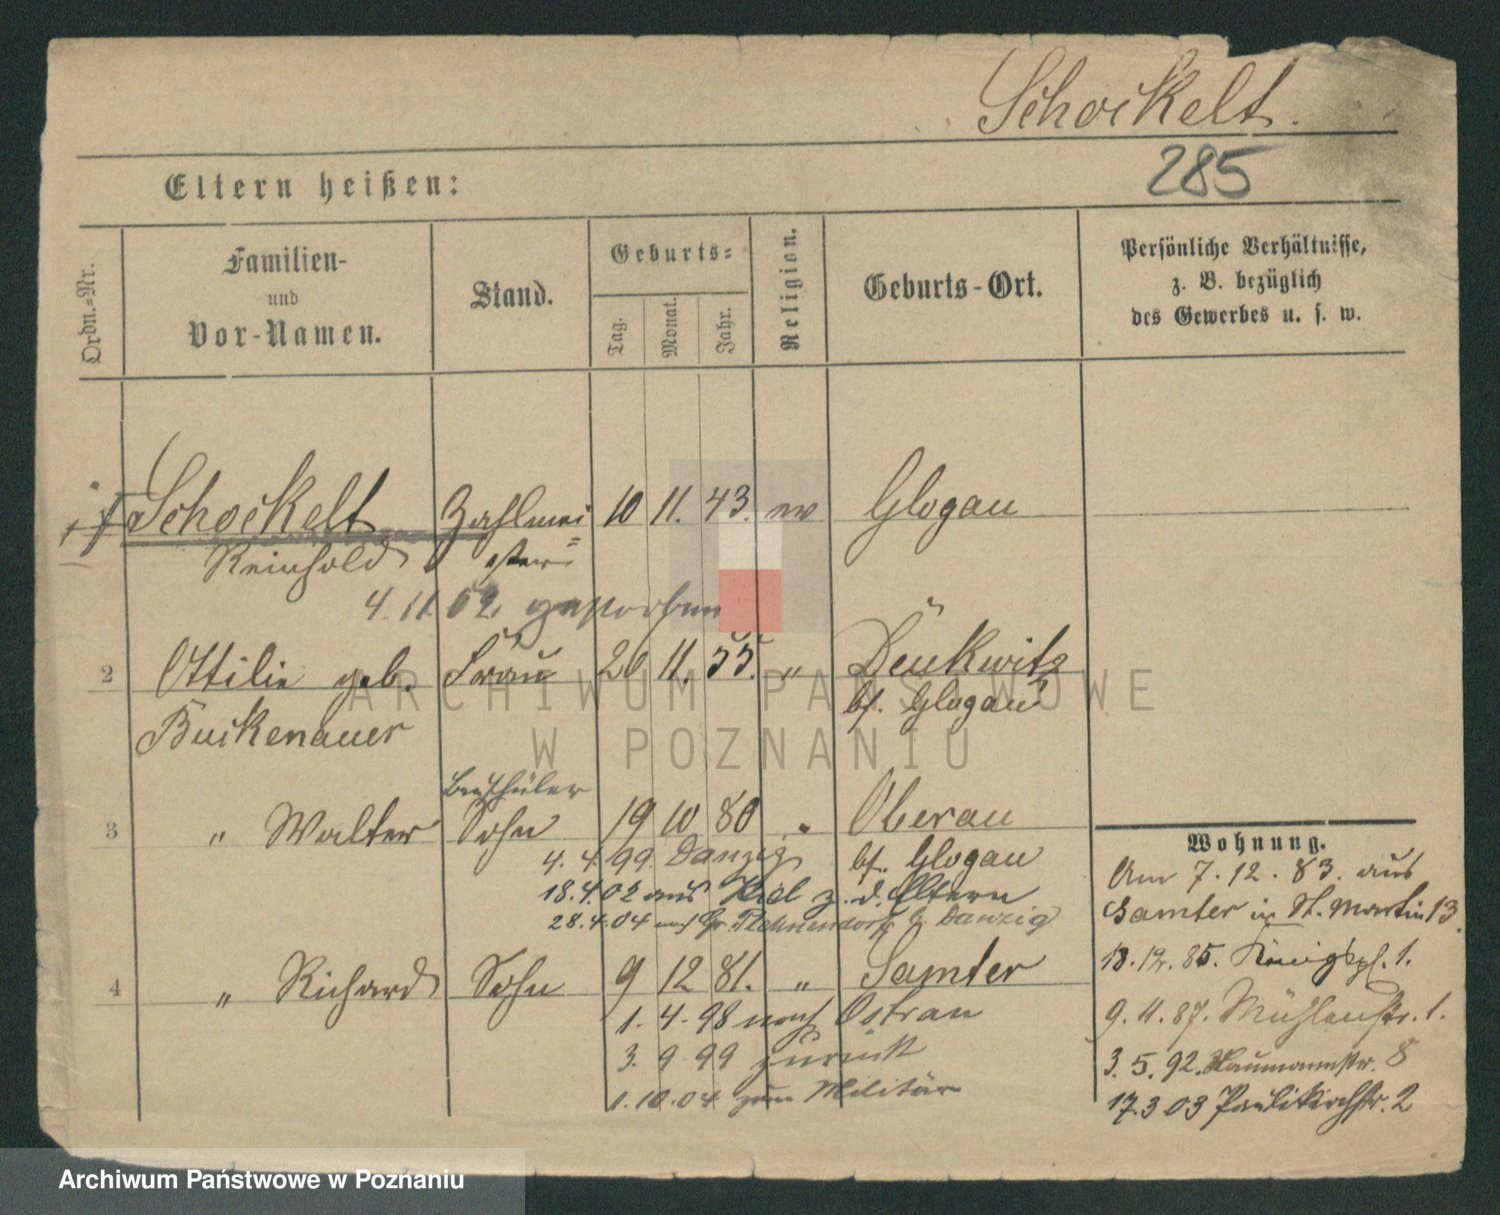 Schockelt.
285
Eltern heißen:
Ordn.-Nr.
Familien-
und
Vor-Namen.
Stand.
Geburts-
Tag.
Monat.
Jahr.
Religion.
Geburts-Ort.
Persönliche Verhältnisse,
z. B. bezüglich
des Gewerbes u. s. w.
Schockelt Zahlmei 10 11. 43. ev Glogau
Reinhold ster
4. 11. 02 gestorben
2 Ottilie geb. Frau 20 11. 55. " Denkwitz
Buckenauer bf. Glogau
3 " Walter Sohn 19 10 80 " Oberau
4. 4. 99. Danzig bf. Glogau
18.4.02 aus Kiel z. d. Eltern
28.4.04 nach Gr. Plehnendorf b Danzig
4 " Richard Sohn 9 12 81. " Samter
1. 4. 98 nach Ostrau
3. 9 99 zurück
1. 10. 04 zum Militär
Wohnung.
Am 7. 12. 83. aus
Samter in St. Martin 13.
Königspl. 1.
9. 4. 87. Mühlenstr. 1.
3. 5. 92. Naumannstr. 8
17. 3 03 Paulikirchstr. 2
ARCHIWUM PAŃSTWOWE
W POZNANIU
Archiwum Państwowe w Poznaniu